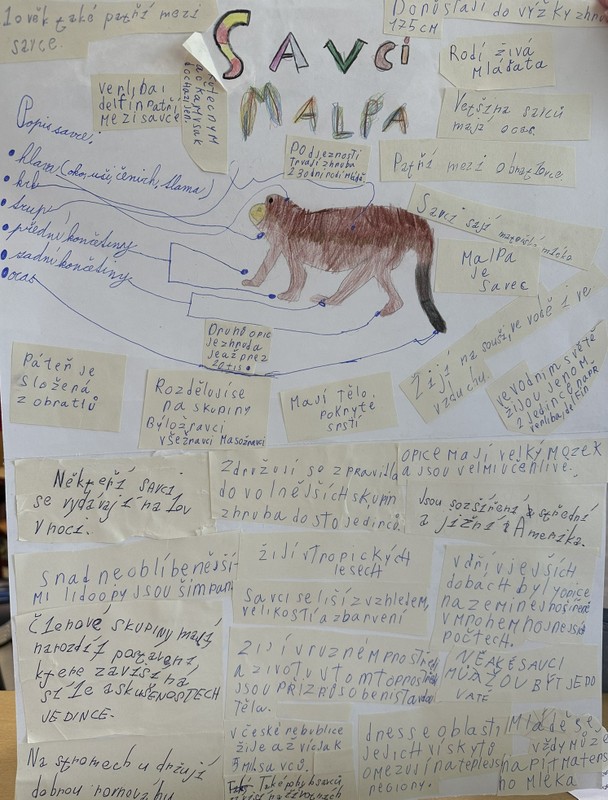 člověk také patří mezi
savce.
SAVCI
MALPA
Dorůstají do výšky zhru
175 cm
Rodí živá
mláďata
velriba i
delfín patří
mezi savce
Většina savců
mají ocas.
Patří mezi obratlovce.
Podjeznosti
Trvají zhruba
Popis savce:
• hlava (oko, uši, čenich, tlama)
• krk
• trup
• přední končetiny
• zadní končetiny
• ocas
Savci sají mateřské mléko
Malpa
je
savec
Druhů opic
je zhruba
Žijí na souši, ve vodě i ve
vzduchu.
ve vodním světě
žijou jenom
2 jedinci např
Páteř je
složená
z obratlů
Rozdělují se
na skupiny
Býložravci
všežravci Masožravci
Mají tělo
pokryté
srstí
Někteří savci
se vydávají na lov
v noci.
Združují se zpravidla
do volnějších skupin
zhruba do sto jedinců.
OPICE MAJÍ VELKÝ MOZEK
A JSOU VELMI UČENLIVÉ.
Jsou rozšíření z střední
a jižní Amerika.
snad neoblíbenější
mi lidoopy jsou šimpan
žijí v tropických
lesech
Savci se liší vzhledem,
velikostí a zbarvení
v dřívějších
dobách byly opice
na zemi nejhoš
v mnohem hojnejsích
počtech.
Členové skupiny mají
narozdíl postavení
ktere závisí na
síle a skušenostech
JEDINCE.
Žijí v různém prostředí
a životu v tomto prostředí
jsou přizpůsobeni stavbou
těla.
NĚAKÉ SAVCI
MŮŽOU BÝT JEDO
VATÉ
v české republice
žije až víc jak
savců.
dnes se oblasti
jejich vískytu
omezují na teplejší
regiony.
Mládě se
vždy může
napít mateřs
ho mléka
Na stromech udržují